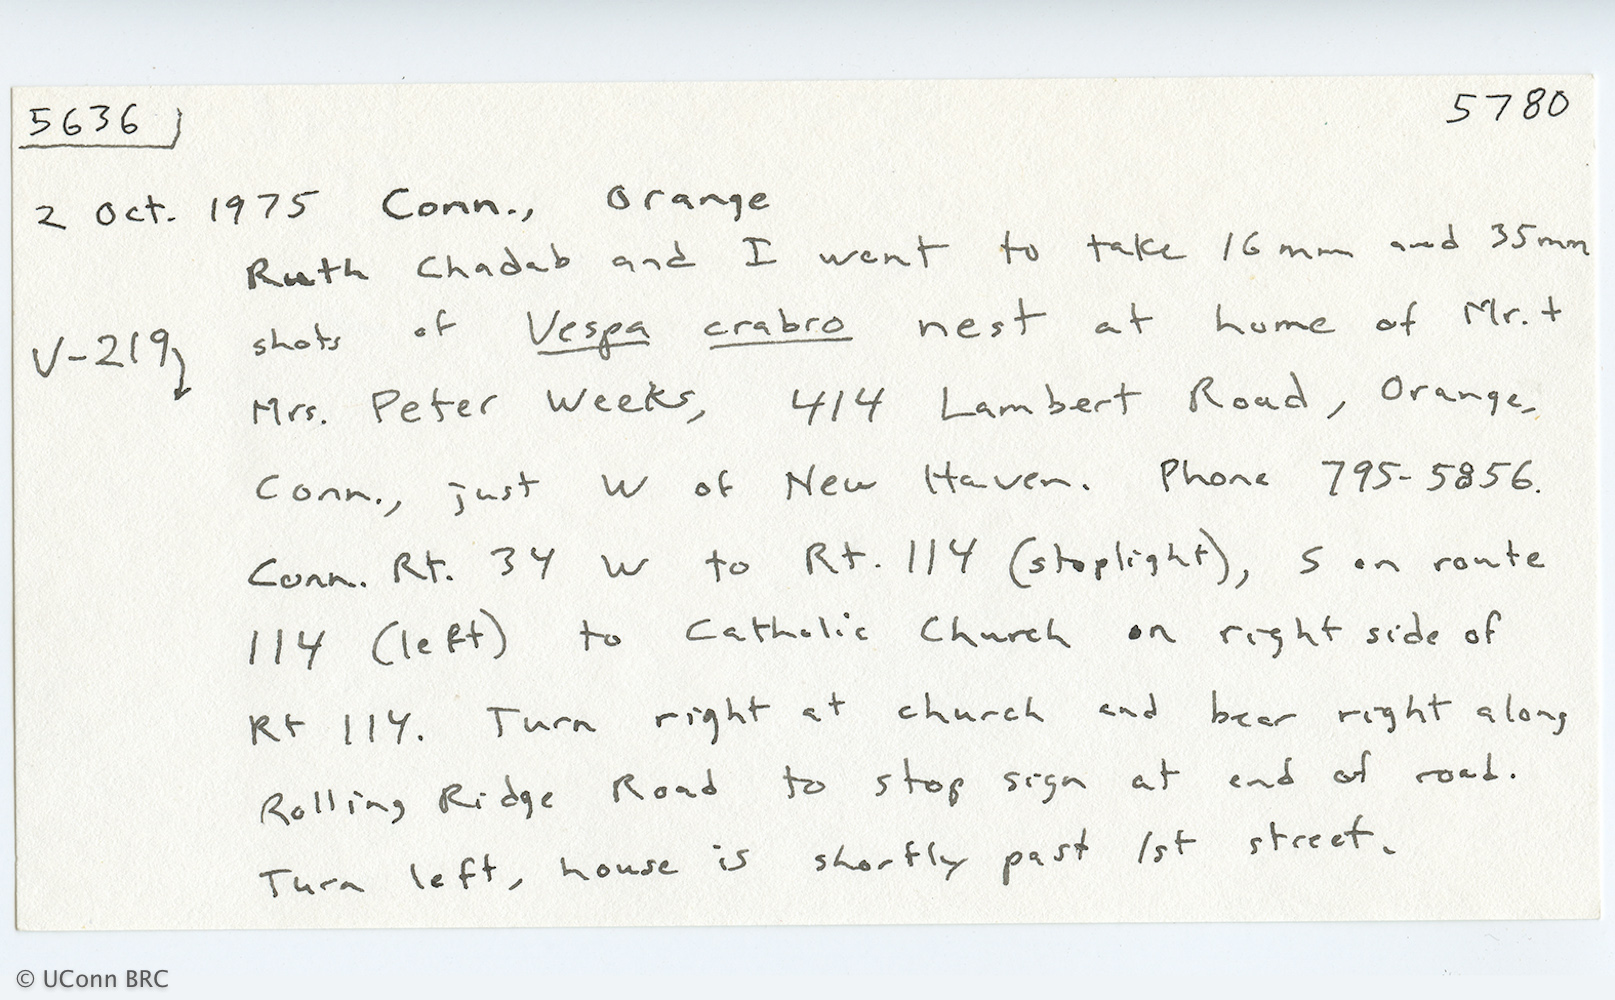 5636 5780
2 Oct. 1975 Conn., Orange
Ruth Chadab and I went to take 16 mm and 35mm
shots of Vespa crabro nest at home of Mr. +
V-219
Mrs. Peter Weeks, 414 Lambert Road, Orange,
Conn., just W of New Haven. Phone 795-5856.
Conn. Rt. 34 W to Rt. 114 (stoplight), S on route
114 (left) to Catholic Church on right side of
Rt 114. Turn right at church and bear right along
Rolling Ridge Road to stop sign at end of road.
Turn left, house is shortly past 1st street.
© UConn BRC